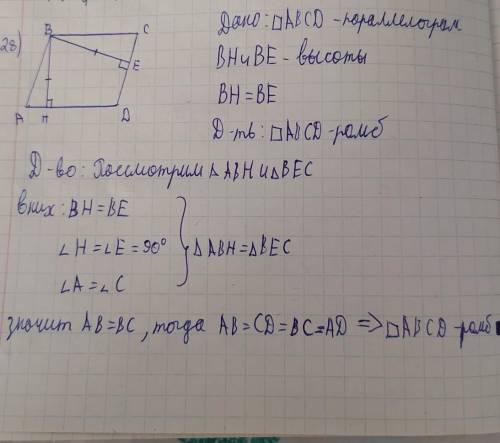 28)
B C
E
A H D
Дано: □ABCD - параллелограм
BH и BE - высоты
BH = BE
Д-ть: □ABCD - ромб
Д-во: Рассмотрим △ABH и △BEC
в них: BH = BE
∠H = ∠E = 90°
∠A = ∠C
} △ABH = △BEC
значит AB = BC, тогда AB = CD = BC = AD => □ABCD - ромб